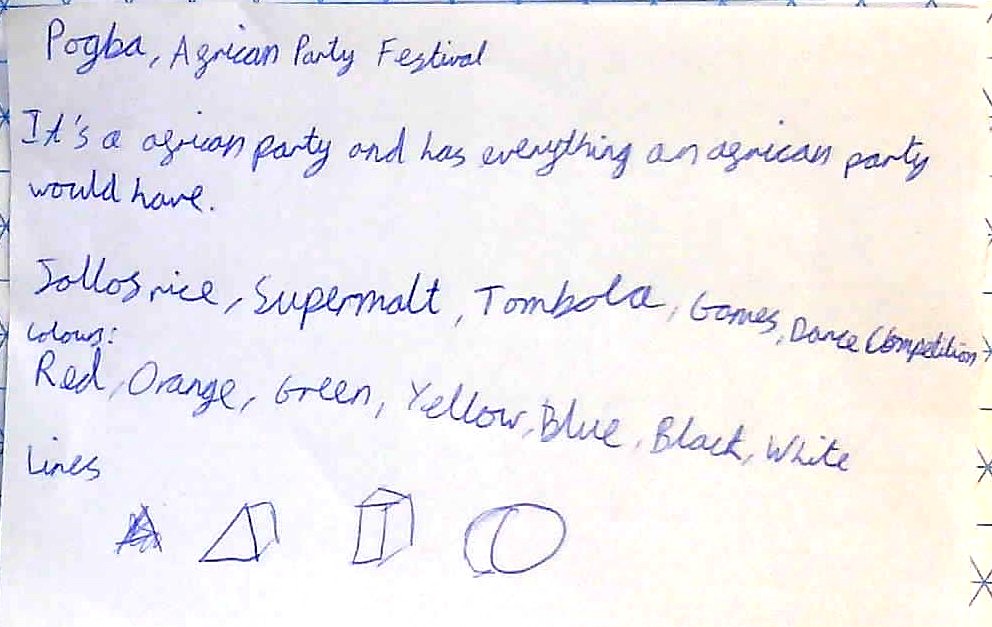 Pogba, Agrican Party Festival
It's a agrican party and has everything an agrican party
would have.
Jollos rice, Supermalt, Tombola, Games, Dance Competition
Colours:
Red, Orange, Green, Yellow, Blue, Black, White
Lines